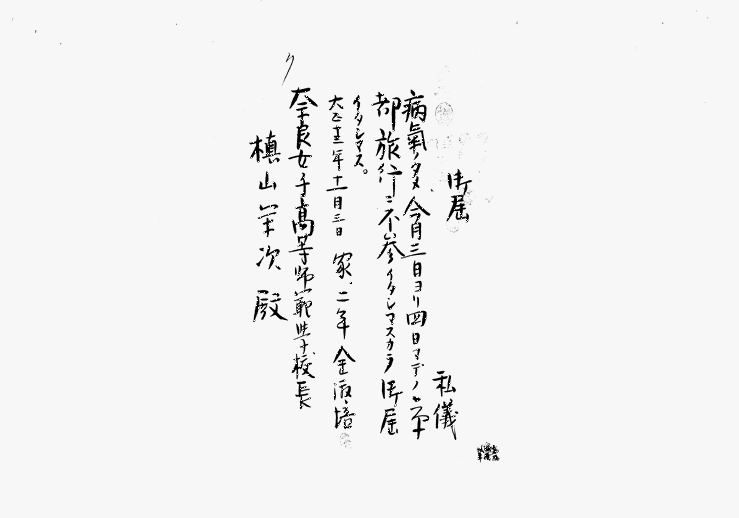 御届
私儀
病氣ノタメ今月三日ヨリ四日マデノ京
都旅行ニ不参イタシマスカラ御届
イタシマス。
大正十三年十一月三日 家、二年 金海培
奈良女子高等師範学校長
槙山栄次殿